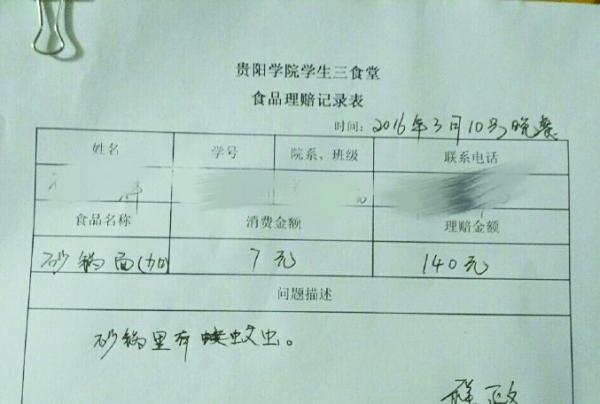 贵阳学院学生三食堂
食品理赔记录表
时间: 2016年3月10号晚餐
姓名 学号 院系、班级 联系电话
食品名称 消费金额 理赔金额
砂锅面(加) 7元 140元
问题描述
砂锅里有蚊虫。